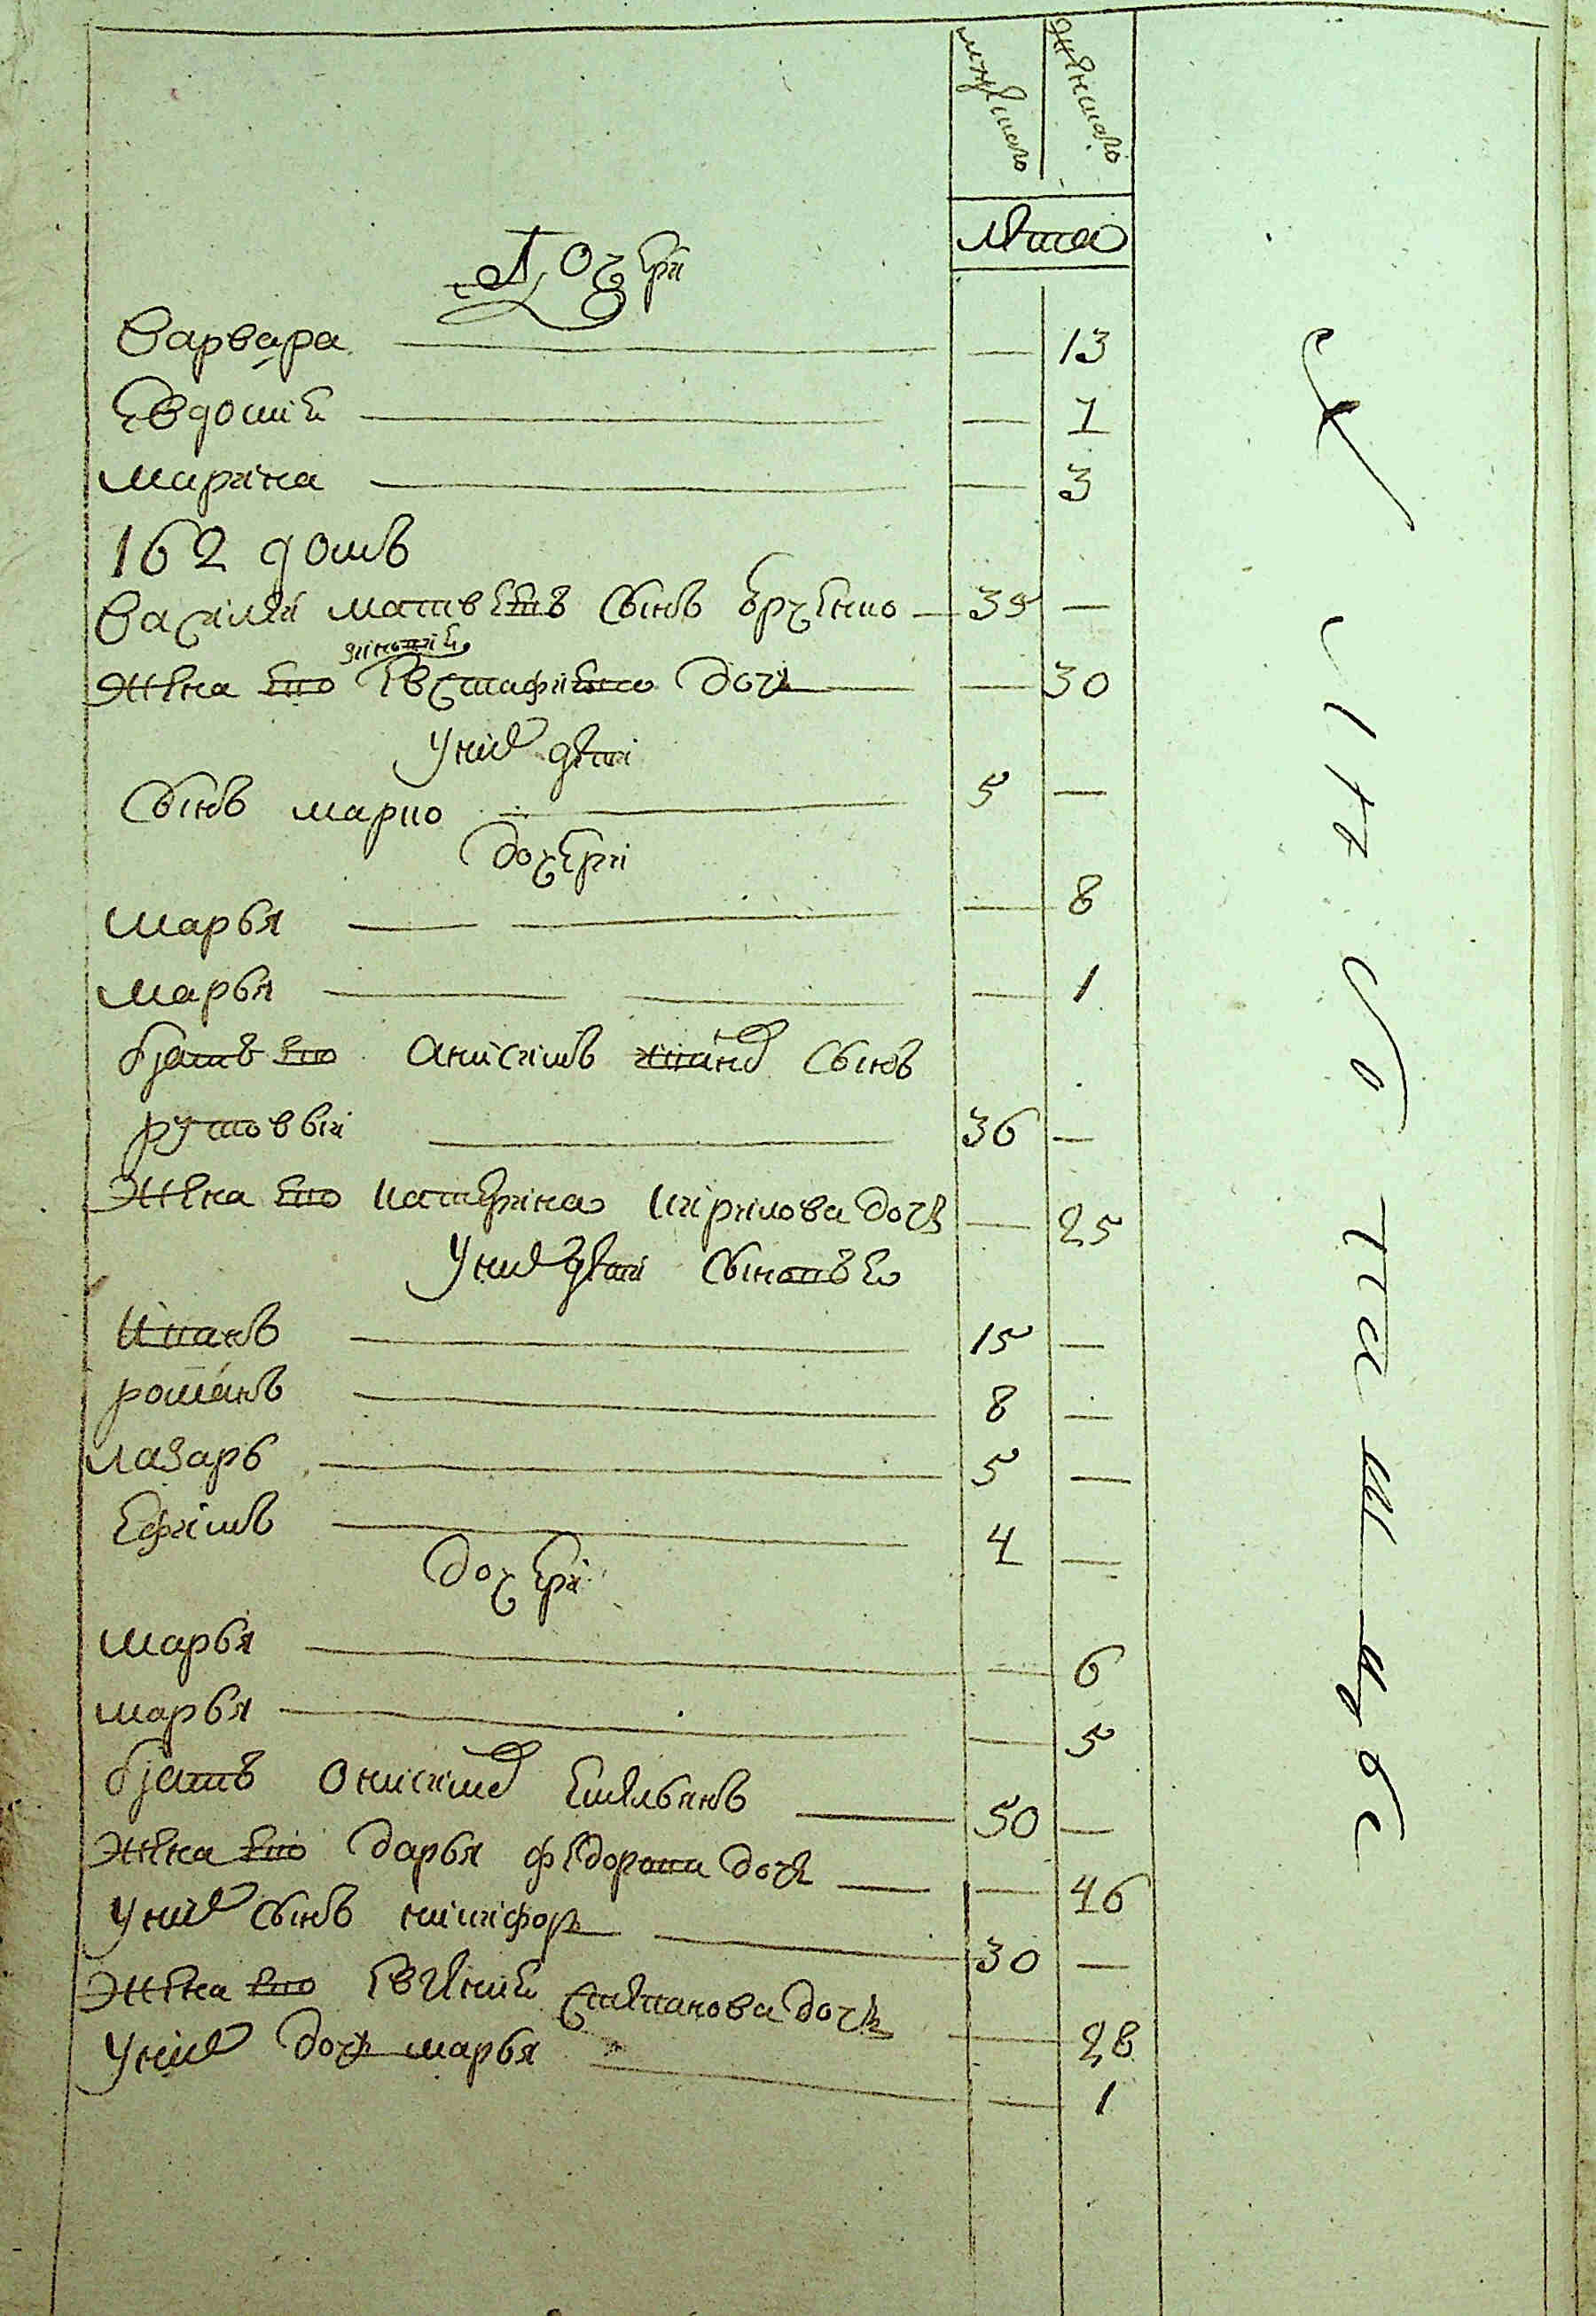 мужеска женска
лѣта
Дочери
Варвара 13
Евдокия 7
марина 3
162 домъ
Василей матвеевъ Сынъ Ерченко 39
зиновия
жена ево Евстафиева дочь 30
У них дети
Сынъ марко 5
дочери
марья 8
марья 1
братъ ево Анисимъ ивановъ Сынъ
рутовѣи 36
жена ево катерина кирилова дочь 25
У них дети Сыновья
Иванъ 15
романъ 8
лазарь 5
Ефимъ 4
дочери
марья 6
марья 5
братъ Онисим Емельянъ 50
жена ево дарья федорова дочь 46
У них Сынъ никифор 30
жена ево Евгения степанова дочь 28
У них дочь марья 1